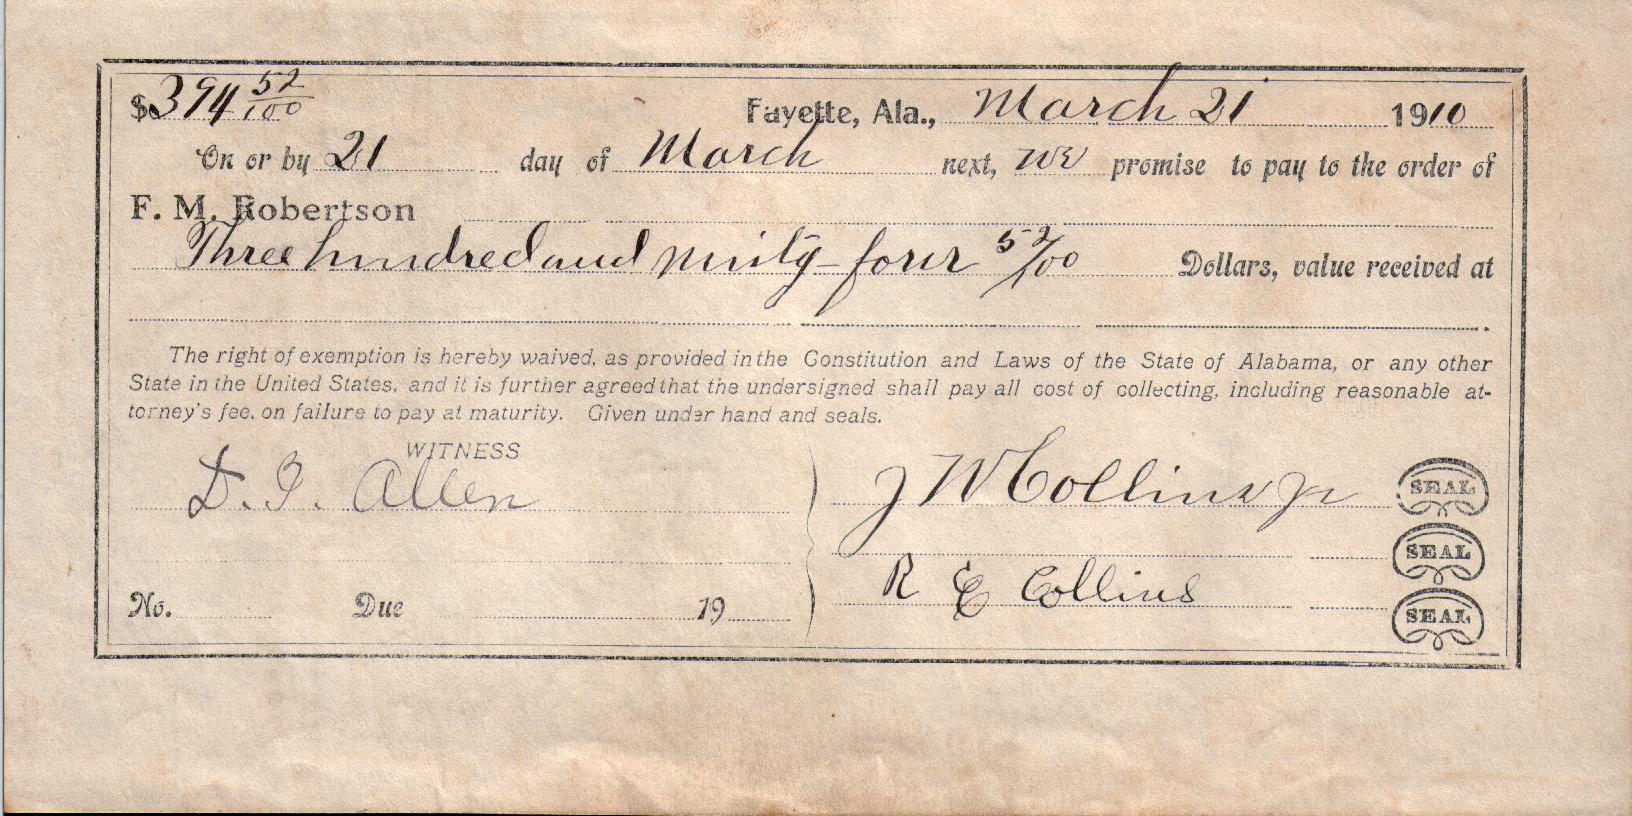 $394 52/100 Fayette, Ala., March 21 1910
On or by 21 day of March next, we promise to pay to the order of
F. M. Robertson
Three hundred and ninty-four 52/100 Dollars, value received at
The right of exemption is hereby waived, as provided in the Constitution and Laws of the State of Alabama, or any other
State in the United States, and it is further agreed that the undersigned shall pay all cost of collecting, including reasonable at-
torney's fee, on failure to pay at maturity. Given under hand and seals.
WITNESS
D. I. Allen
J W Collins Jr SEAL
SEAL
R E Collins
No. Due 19 SEAL